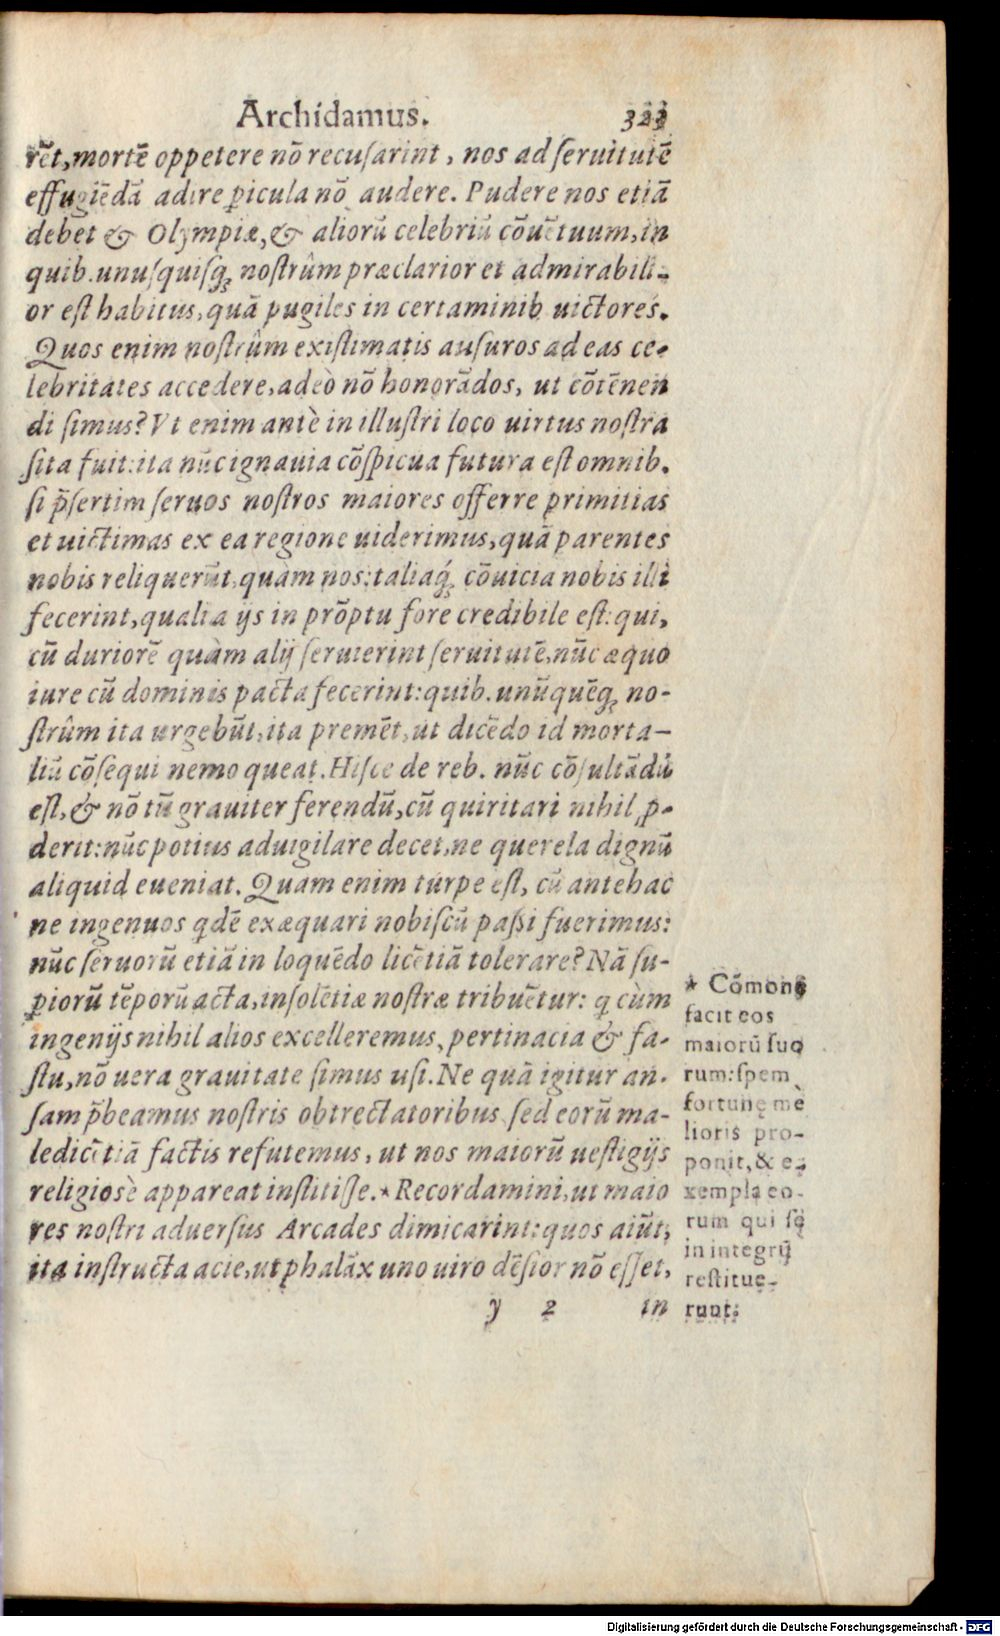 Archidamus. 323
rēt, mortē oppetere nō recuſarint, nos ad ſeruitutē
effugiēdā adire ꝑicula nō audere. Pudere nos etiā
debet & Olympiæ, & aliorū celebriū cōuētuum, in
quib. unuſquiſq; noſtrûm præclarior et admirabili-
or eſt habitus, quā pugiles in certaminib. uictores.
Quos enim noſtrûm exiſtimatis auſuros ad eas ce-
lebritates accedere, adeò nō honorādos, ut cōtēnen
di ſimus? Vt enim antè in illuſtri loco uirtus noſtra
ſita fuit: ita nūc ignauia cōſpicua futura eſt omnib.
ſi p̄ſertim ſeruos noſtros maiores offerre primitias
et uictimas ex ea regione uiderimus, quā parentes
nobis reliquerūt, quàm nos: taliaq́; cōuicia nobis illi
fecerint, qualia ijs in prōptu fore credibile eſt: qui,
cū duriorē quàm alij ſeruierint ſeruitutē, nūc æquo
iure cū dominis pacta fecerint: quib. unūquēq; no-
ſtrûm ita urgebūt, ita premēt, ut dicēdo id morta-
liū cōſequi nemo queat. Hiſce de reb. nūc cōſultādū
eſt, & nō tū grauiter ferendū, cū quiritari nihil ꝓ-
derit: nūc potius aduigilare decet, ne querela dignū
aliquid eueniat. Quam enim turpe eſt, cū antehac
ne ingenuos qdē exæquari nobiſcū paßi fuerimus:
nūc ſeruorū etiā in loquēdo licētiā tolerare? Nā ſu-
ꝑiorū tēporū acta, inſolētiæ noſtræ tribuētur: q cùm
ingenijs nihil alios excelleremus, pertinacia & fa-
ſtu, nō uera grauitate ſimus uſi. Ne quā igitur an-
ſam p̄beamus noſtris obtrectatoribus, ſed eorū ma-
ledicētiā factis refutemus, ut nos maiorū ueſtigijs
religiosè appareat inſtitiſſe. ⋆Recordamini, ut maio
res noſtri aduerſus Arcades dimicarint: quos aiūt,
ita inſtructa acie, ut phalāx uno uiro dēſior nō eſſet,
y 2 in
⋆ Cōmone
facit eos
maiorū ſuo
rum: ſpem
fortunę me
lioris pro-
ponit, & e-
xempla eo-
rum qui ſe
in integrū
reſtitue-
runt.
Digitalisierung gefördert durch die Deutsche Forschungsgemeinschaft - DFG